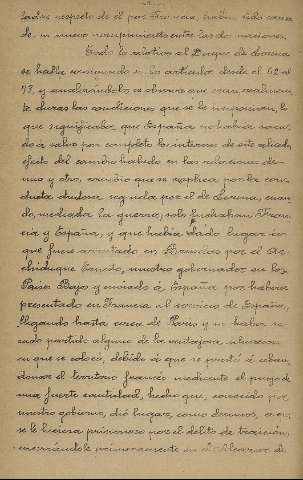 tadas respecto de él por Francia, quién sido causa
de un nuevo rompimiento entre las dos naciones.
Todo lo relativo al Duque de Lorena
se halla consignado en los artículos desde el 62 al
78, y analizándolos se observa que eran realmen
te duras las condiciones que se le imponían, lo
que significaba que España no había saca
do á salvo por completo los intereses de este aliado,
efecto del cambio habido en las relaciones de
uno y otro, cambio que se explica por la con
ducta dudosa seguida por el de Lorena, cuan
do, mediada la guerra, solo luchaban Fran
cia y España, y que había dado lugar á
que fuese arrestado en Bruselas por el Ar
chiduque            , nuestro gobernador en los
Países Bajos y enviado á España por haberse
presentado en Francia al servicio de España,
llegando hasta cerca de Paris y no haber sa
cado partido alguno de las ventajosas
en que se colocó, debido á que se prestó á aban
donar el territorio francés mediante el pago de
una fuerte cantidad, hecho que, conocido por
nuestro gobierno, dió lugar, como decimos, á que
se le hiciera prisionero por el delito de traición,
encerrándole primeramente en el Alcázar de